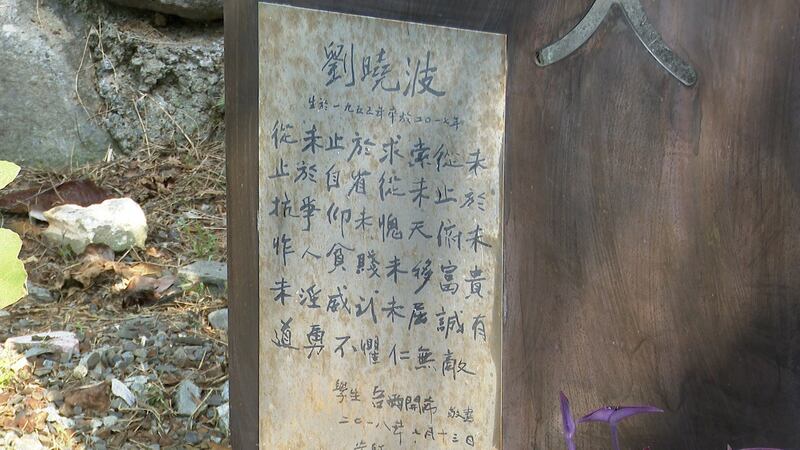 劉曉波
生於一九五五年卒於二〇一七年
從未止於求索從未
止於自省從未止於
抗爭仰未愧天俯未
怍人貧賤未移富貴
未淫威武未屈誠有
道勇不懼仁無敵
學生 敬書
二〇一八年七月十三日